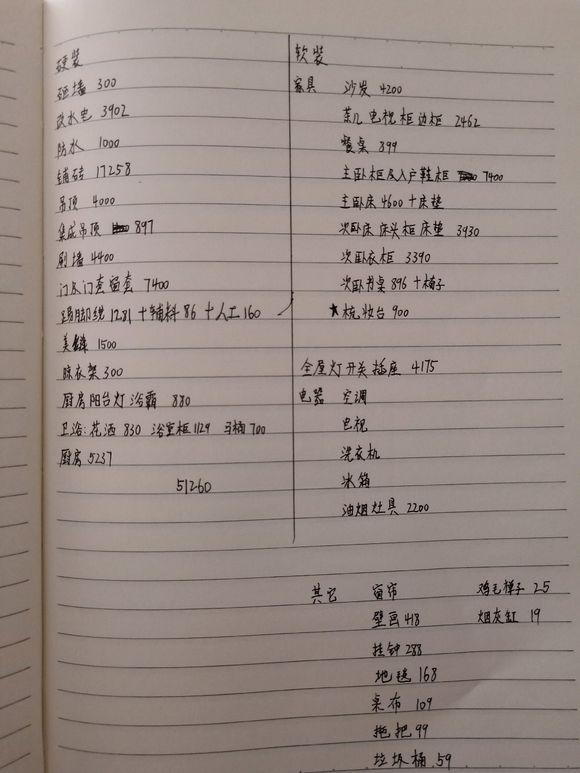 硬装
砸墙 300
改水电 3902
防水 1000
铺砖 17258
吊顶 4000
集成吊顶 897
刷墙 4400
门及门套窗套 7400
踢脚线 1281 + 辅料 86 + 人工 160
美缝 1500
晾衣架 300
厨房阳台灯 浴霸 880
卫浴:花洒 830 浴室柜 1129 马桶 700
厨房 5237
51260
软装
家具 沙发 4200
茶几 电视柜 边柜 2462
餐桌 899
主卧柜及入户鞋柜 7400
主卧床 4600 + 床垫
次卧床 床头柜 床垫 3930
次卧衣柜 3390
次卧书桌 896 + 椅子
★梳妆台 900
全屋灯 开关 插座 4175
电器 空调
电视
洗衣机
冰箱
油烟灶具 2200
其它 窗帘 鸡毛掸子 25
壁画 418 烟灰缸 19
挂钟 288
地毯 168
桌布 109
拖把 99
垃圾桶 59